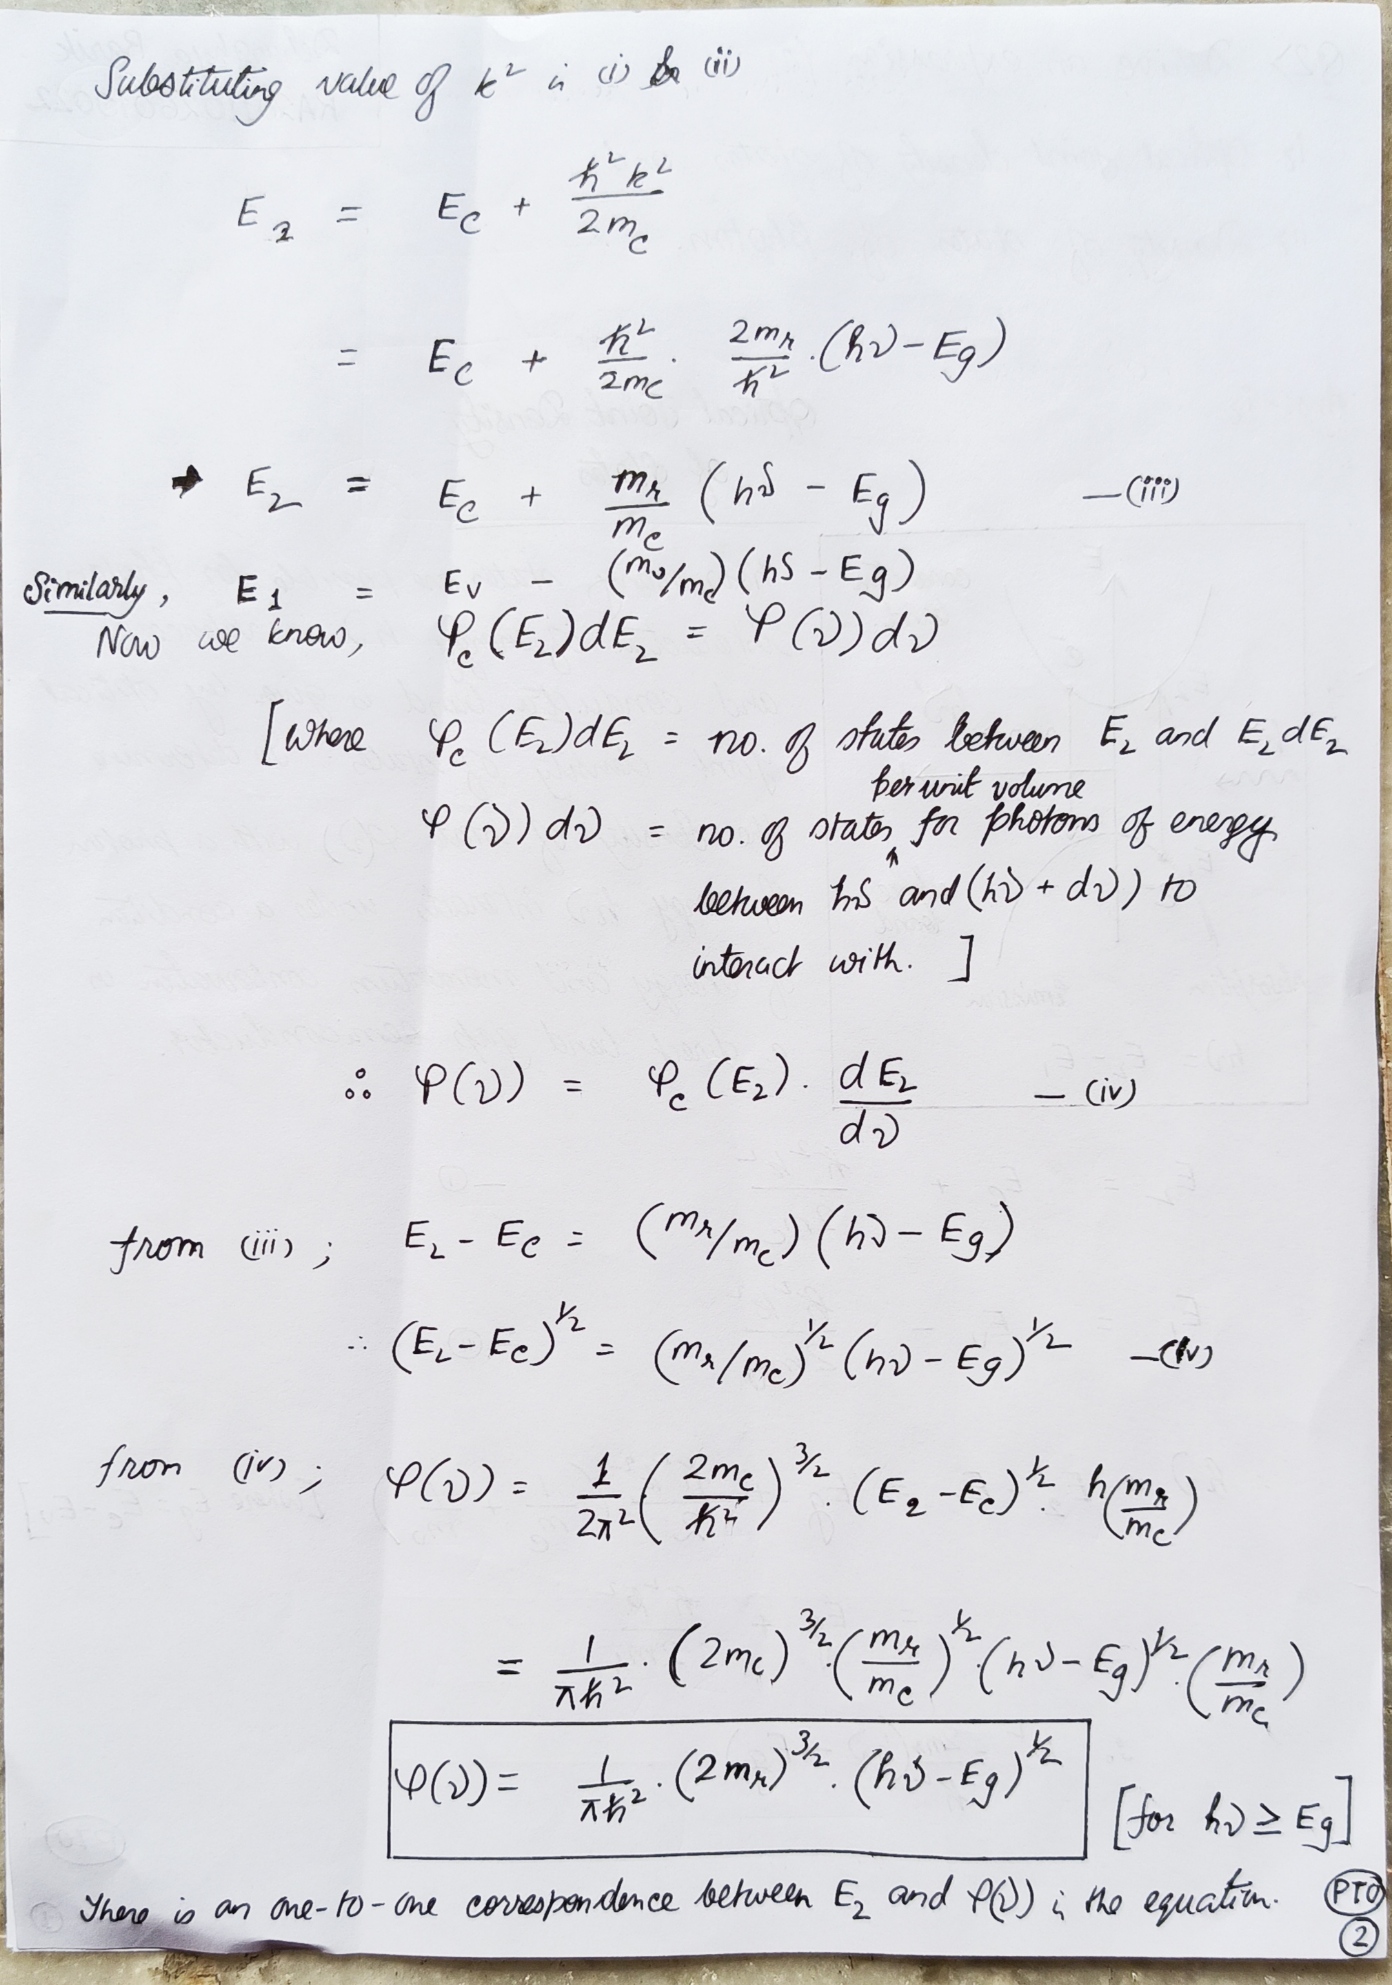 Substituting value of k² in (i) & (ii)
E₂ = E_C + ℏ²k²/2m_C
= E_C + ℏ²/2m_C . 2m_r/ℏ² . (hν - Eg)
→ E₂ = E_C + m_r/m_C (hν - Eg) —(iii)
Similarly, E₁ = E_V - (m_v/m_c)(hν - Eg)
Now we know, φ_c(E₂)dE₂ = φ(ν)dν
[Where φ_c(E₂)dE₂ = no. of states between E₂ and E₂dE₂
per unit volume
φ(ν)dν = no. of states ↑ for photons of energy
between hν and (hν + dν) to
interact with. ]
∴ φ(ν) = φ_c(E₂) . dE₂/dν —(iv)
from (iii) ; E₂ - E_C = (m_r/m_c)(hν - Eg)
∴ (E₂ - E_C)^½ = (m_r/m_c)^½ (hν - Eg)^½ —(iv)
from (iv) ; φ(ν) = 1/2π² (2m_c/ℏ²)^3/2 . (E₂ - E_C)^½ . h(m_r/m_c)
= 1/πℏ² . (2m_c)^3/2 . (m_r/m_c)^½ . (hν - Eg)^½ . (m_r/m_c)
φ(ν) = 1/πℏ² . (2m_r)^3/2 . (hν - Eg)^½ [for hν ≥ Eg]
There is an one-to-one correspondence between E₂ and φ(ν) in the equation. PTO
2